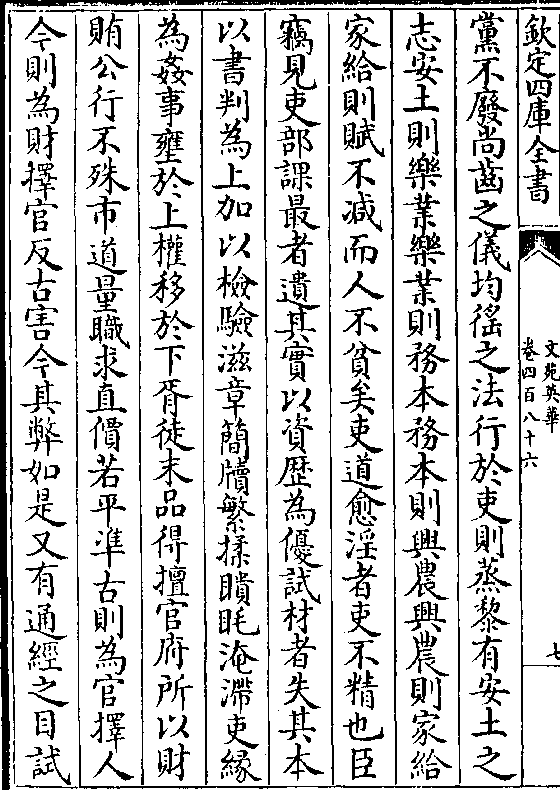 欽定四庫全書
文苑英華
卷四百八十六
七
黨不廢尚齒之儀均徭之法行於吏則蒸黎有安土之
志安土則樂業樂業則務本務本則興農興農則家給
家給則賦不减而人不貧矣吏道愈淫者吏不精也臣
竊見吏部課最者遺其實以資歴為優試材者失其本
以書判為上加以檢驗滋章簡牘繁揉瞶眊淹滯吏緣
為姦事壅於上權移於下胥徒末品得擅官府所以財
賄公行不殊市道量職求直價若平準古則為官擇人
今則為財擇官反古害今其弊如是又有通經之目試